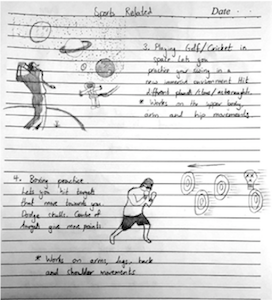 Sports Related
Date
3. Playing Golf/Cricket in
space lets you
practice your swing in a
new immersive environment. Hit
different planets/stars/astronauts.
* Works on the upper body,
arm and hip movements.
4. Boxing practice
lets you hit targets
that move towards you.
Dodge skulls. Centre of
targets give more points
* Works on arms, legs, back
and shoulder movements